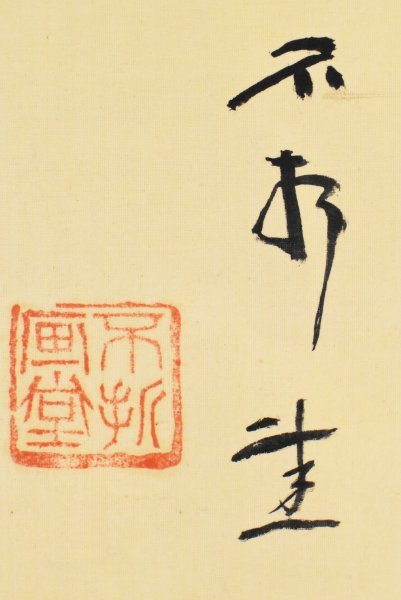 不折畫
不折
画堂